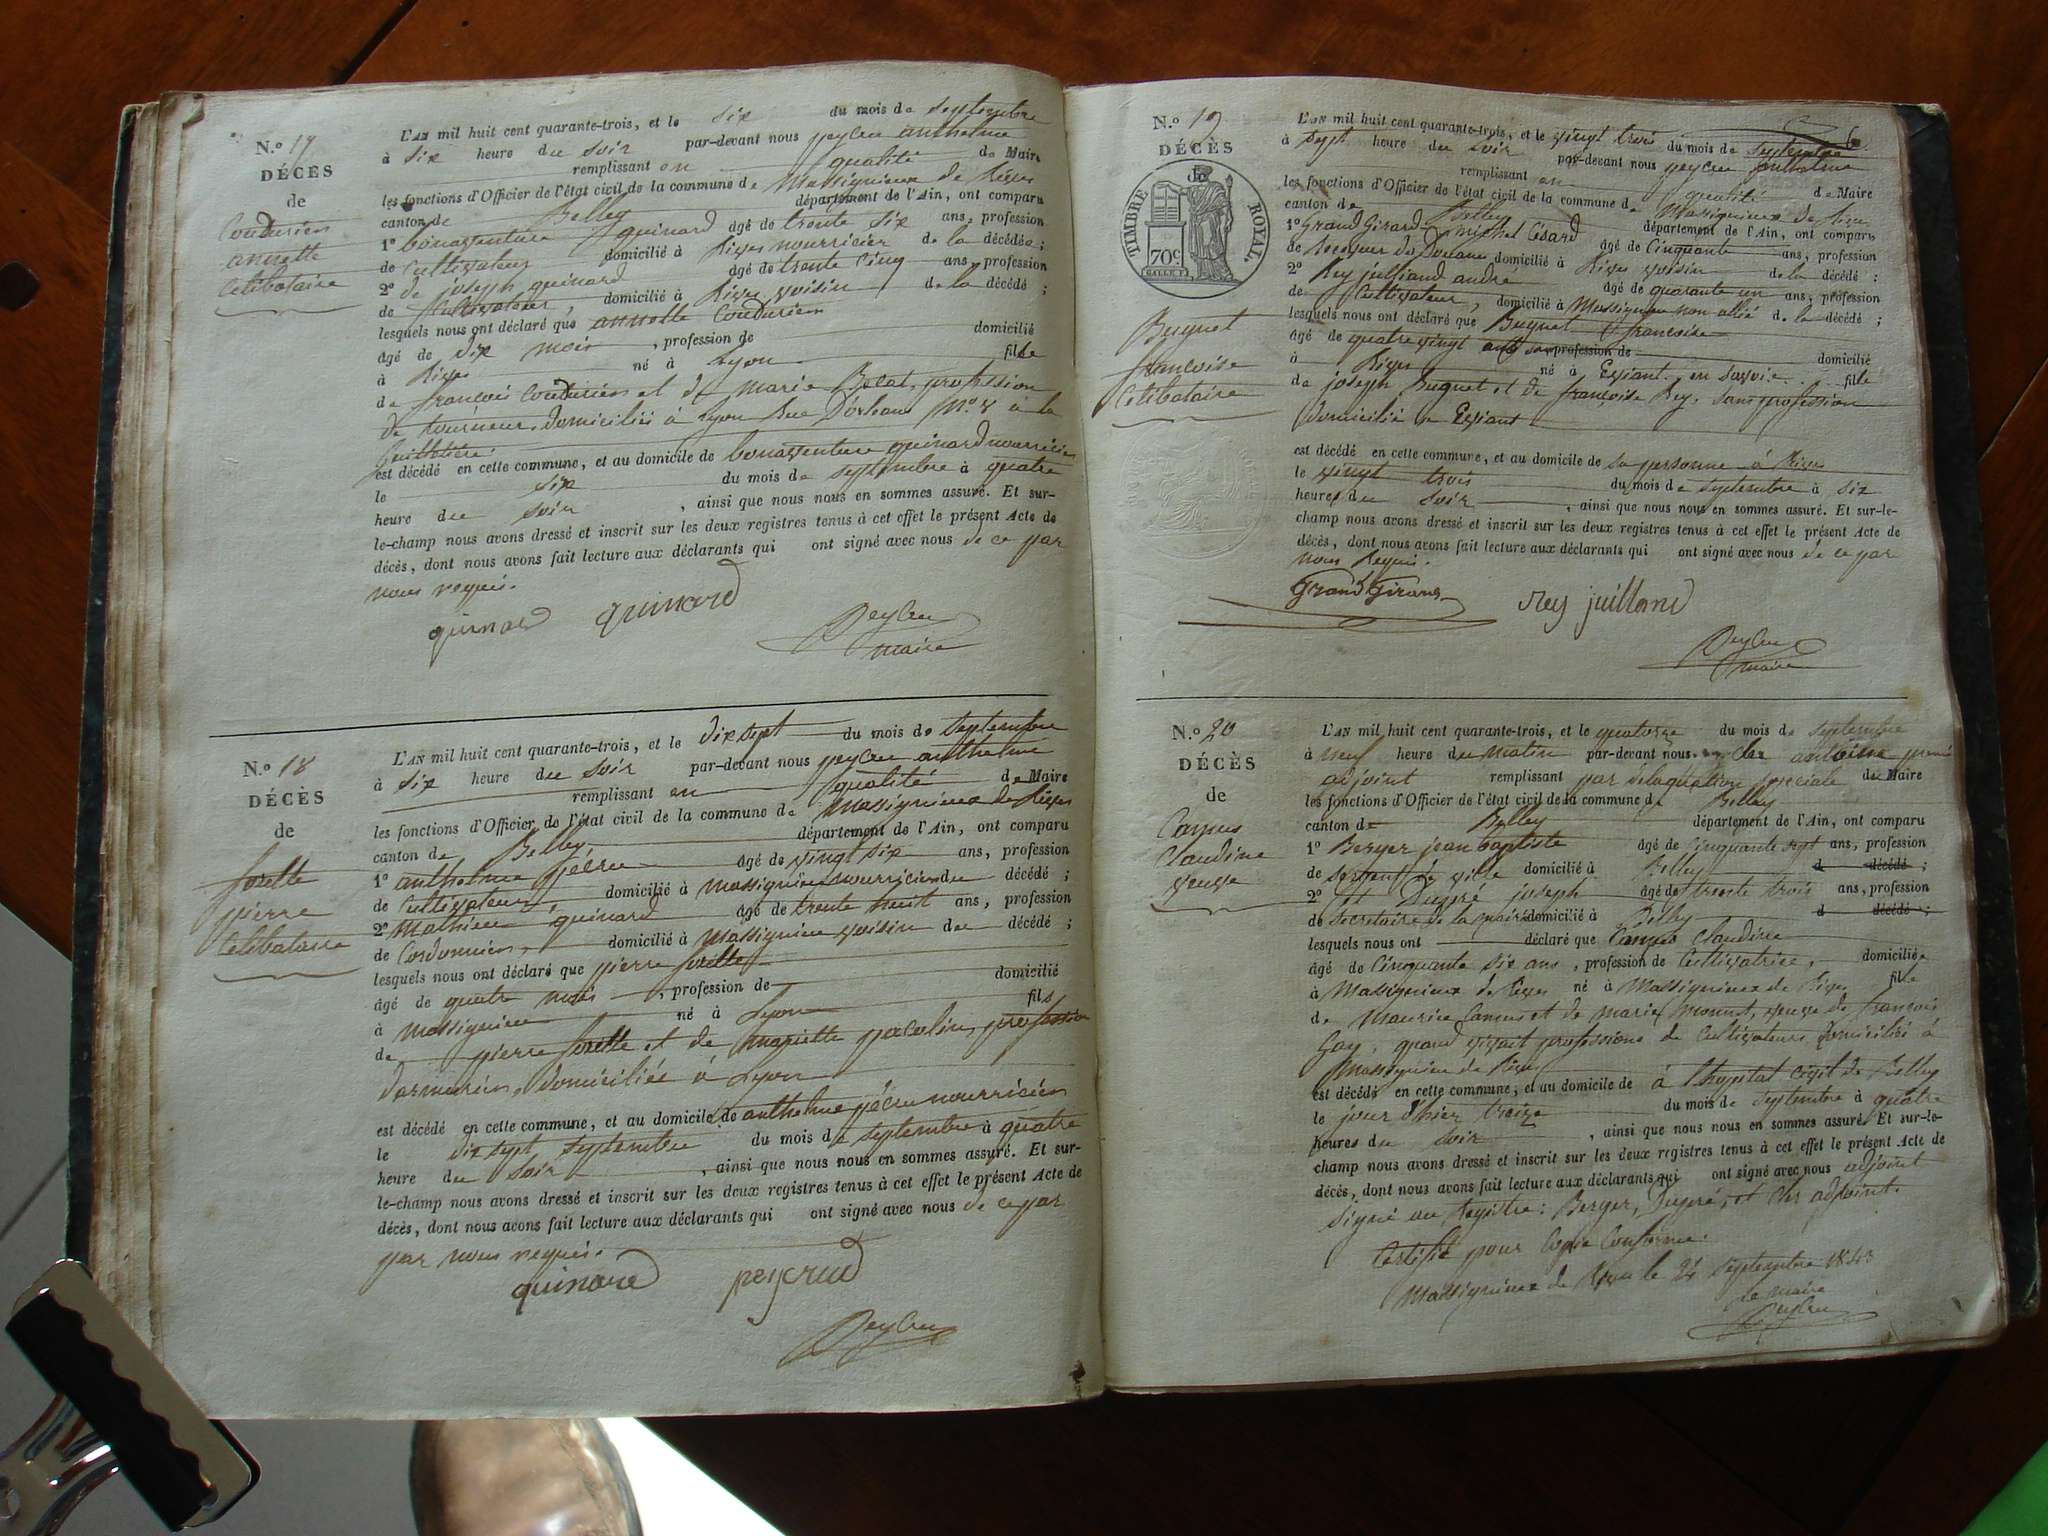 N.o 17
DÉCÈS
de
Couturier
annette
Celibataire
L'AN mil huit cent quarante-trois, et le six du mois de septembre
à six heure du soir par-devant nous peycru anthelme
remplissant en qualité de Maire
les fonctions d'Officier de l'état civil de la commune de Massignieu de Rives
canton de Belley département de l'Ain, ont comparu
1o bonaventure guinard agé de trente six ans, profession
de Cultivateur domicilié à Rives nourricier de la décédée ;
2o de joseph guinard agé de trente cinq ans, profession
de Cultivateur, domicilié à Rives voisin de la décédé ;
lesquels nous ont déclaré que annette
âgé de dix mois, profession de domicilié
à Rives né à Lyon fille
de françois et de Marie profession
de tourneur, domiciliés à Lyon Rue D'orleans No à la
Guillotière.
est décédé en cette commune, et au domicile de bonaventure guinard nourricier
le six du mois de septembre à quatre
heure du soir, ainsi que nous nous en sommes assuré. Et sur-
le-champ nous avons dressé et inscrit sur les deux registres tenus à cet effet le présent Acte de
décès, dont nous avons fait lecture aux déclarants qui ont signé avec nous de ce par
nous requis.
guinard guinard
Peycru
maire
N.o 18
DÉCÈS
de
pierre
Celibataire
L'AN mil huit cent quarante-trois, et le dix sept du mois de septembre
à six heure du soir par-devant nous peycru anthelme
remplissant en qualité de Maire
les fonctions d'Officier de l'état civil de la commune de Massignieu de Rives
canton de Belley département de l'Ain, ont comparu
1o anthelme agé de vingt six ans, profession
de Cultivateur, domicilié à Massignieu nourricier du décédé ;
2o Mathieu guinard agé de trente neuf ans, profession
de Cordonnier, domicilié à Massignieu voisin du décédé ;
lesquels nous ont déclaré que pierre
âgé de quatre mois, profession de domicilié
à Massignieu né à Lyon fils
de pierre et de mariette profession
domiciliés à Lyon
est décédé en cette commune, et au domicile de anthelme nourricier
le dix sept septembre du mois de septembre à quatre
heure du soir, ainsi que nous nous en sommes assuré. Et sur-
le-champ nous avons dressé et inscrit sur les deux registres tenus à cet effet le présent Acte de
décès, dont nous avons fait lecture aux déclarants qui ont signé avec nous de ce par
par nous requis.
guinard peycrud
Peycru
N.o 19
DÉCÈS
TIMBRE ROYAL.
70c
Buynet
francoise
Celibataire
6
L'AN mil huit cent quarante-trois, et le vingt trois du mois de septembre
à sept heure du soir par-devant nous peycru anthelme
remplissant en qualité de Maire
les fonctions d'Officier de l'état civil de la commune de Massignieu de Rives
canton de Belley département de l'Ain, ont comparu
1o Grand Girard michel Césard agé de Cinquante ans, profession
de Receveur de Douane domicilié à Rives voisin de la décédé :
2o Rey juilliard andré agé de quarante un ans, profession
de Cultivateur, domicilié à Massignieu non allié de la décédé ;
lesquels nous ont déclaré que Buynet francoise
âgé de quatre vingt ans profession de domicilié
à Rives né à en Savoie fille
de joseph Buynet et de françoise Rey, sans profession
domicilié a
est décédé en cette commune, et au domicile de sa personne à Rives
le vingt trois du mois de septembre à six
heures du soir, ainsi que nous nous en sommes assuré. Et sur-le-
champ nous avons dressé et inscrit sur les deux registres tenus à cet effet le présent Acte de
décès, dont nous avons fait lecture aux déclarants qui ont signé avec nous de ce par
nous Requis.
Grand Girard Rey juilland
Peycru
maire
N.o 20
DÉCÈS
de
Camus
Claudine
veuve
L'AN mil huit cent quarante-trois, et le quatorze du mois de septembre
à neuf heure du matin par-devant nous antoine premier
adjoint remplissant par délégation speciale de Maire
les fonctions d'Officier de l'état civil de la commune de Belley
canton de Belley département de l'Ain, ont comparu
1o Berger jean baptiste agé de cinquante sept ans, profession
de sergent de ville domicilié à Belley d décédé ;
2o Et Dupré joseph agé de trente trois ans, profession
de secretaire de la mairie domicilié à Belley d décédé ;
lesquels nous ont déclaré que Camus Claudine
âgé de Cinquante six ans, profession de Cultivatrice, domiciliée
à Massignieux de Rives né à Massignieux de Rives fille
de Maurice Camus et de marie veuve de francois
Goy, quand vivait professions de Cultivateurs domiciliés à
Massignieu de Rives
est décédé en cette commune, et au domicile de à l'hopital civil de Belley
le jour d'hier treize du mois de septembre à quatre
heures du soir, ainsi que nous nous en sommes assuré. Et sur-le-
champ nous avons dressé et inscrit sur les deux registres tenus à cet effet le présent Acte de
décès, dont nous avons fait lecture aux déclarants qui ont signé avec nous adjoint
signé au registre : Berger, Dupré, et adjoint.
Certifié pour Copie Conforme.
Massignieu de Rives le 24 septembre 1843
Le maire
Peycru